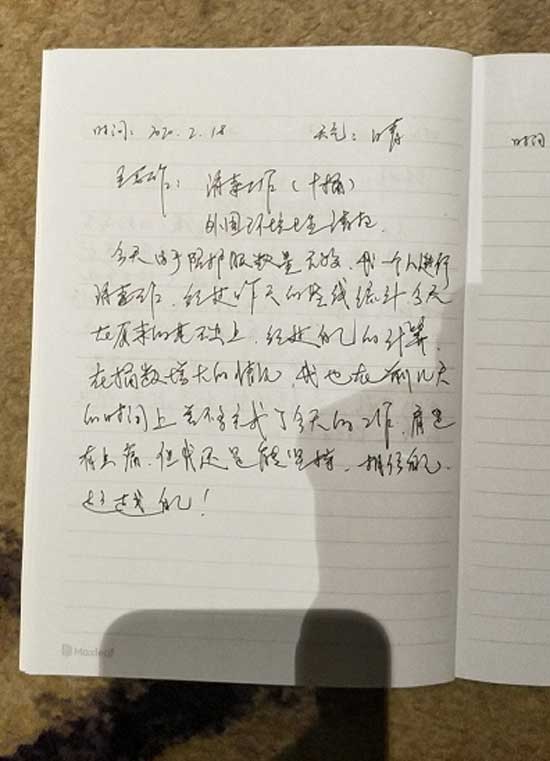 时间：2020.2.18 天气：晴
主要工作：消毒工作（十桶）
外围环境卫生清扫.
今天由于防护服数量不够，我一个人进行
消毒工作，经过昨天的路线统计，今天
在原来的基础上，经过自己的计算，
在桶数增大的情况，我也在前几天
的时间上差不多完成了今天的工作，肩是
有点痛，但我还是能坚持，相信自己，
超越自己！
Maxleaf
时间